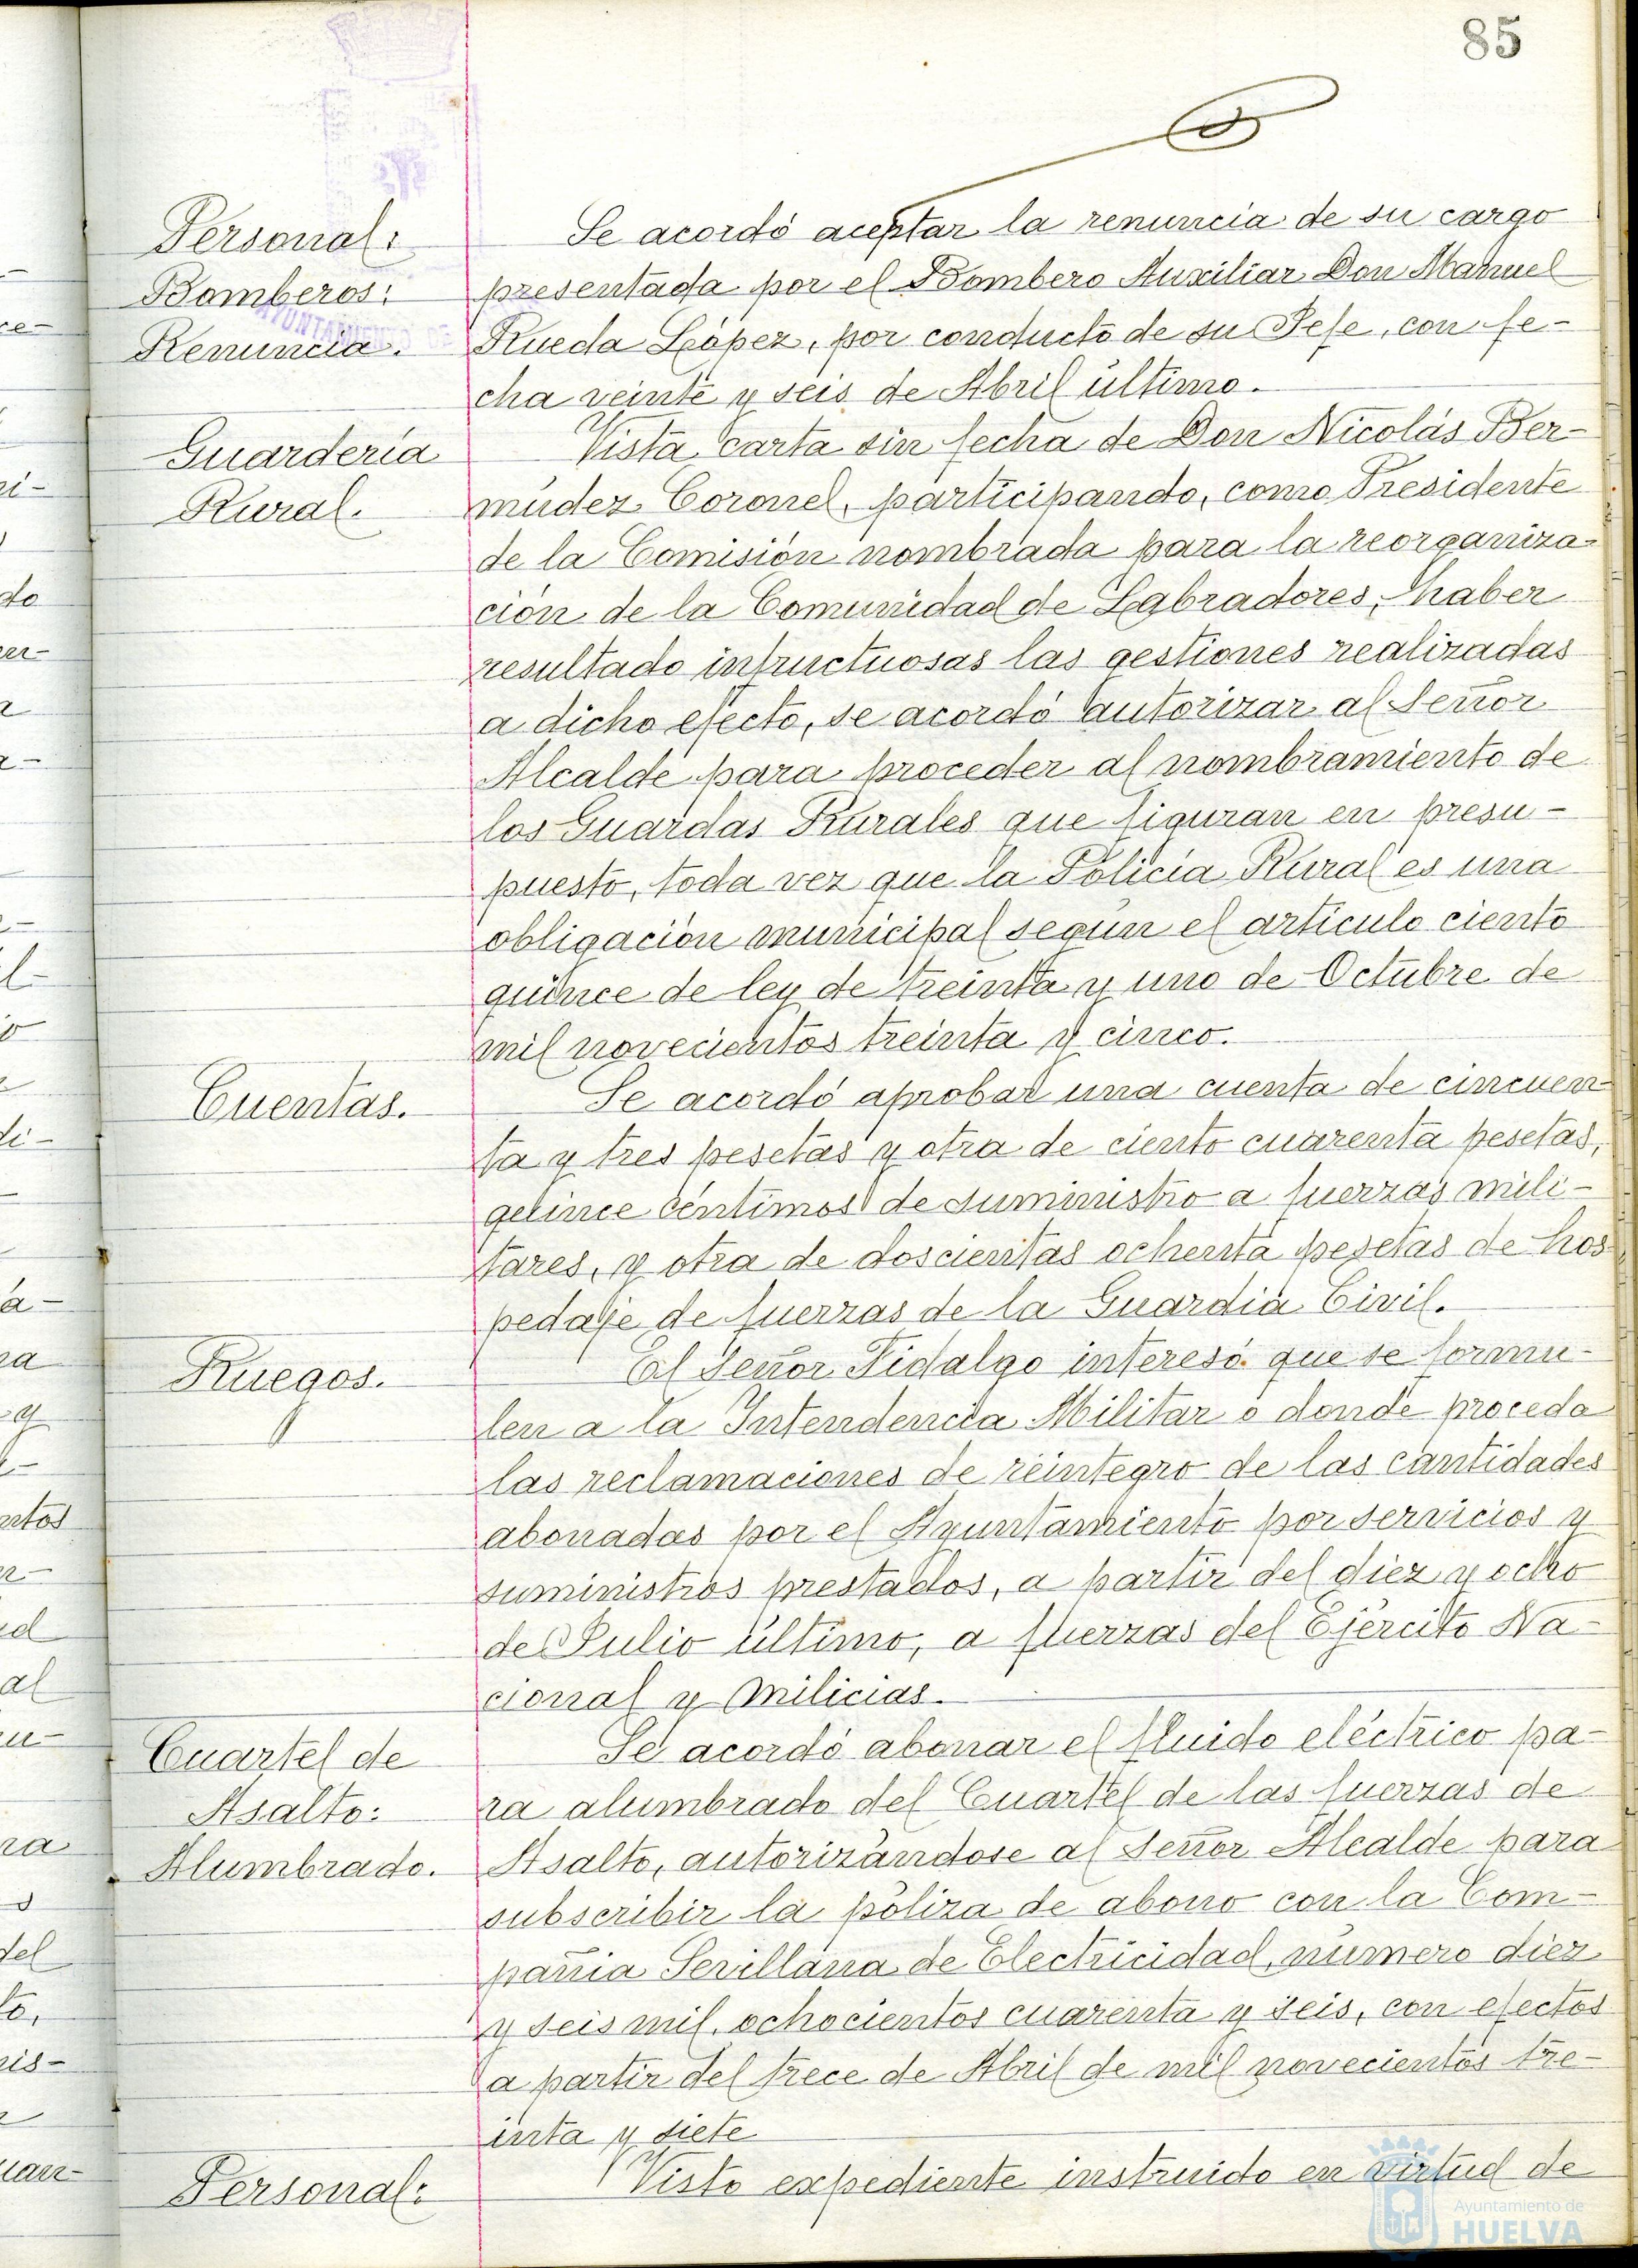 85
Personal:
Bomberos:
Renuncia.
Se acordó aceptar la renuncia de su cargo
presentada por el Bombero Auxiliar Don Manuel
Rueda López, por conducto de su Jefe, con fe-
cha veinte y seis de Abril último.
Guardería
Rural.
Vista carta sin fecha de Don Nicolás Ber-
múdez Coronel, participando, como Presidente
de la Comisión nombrada para la reorganiza-
ción de la Comunidad de Labradores, haber
resultado infructuosas las gestiones realizadas
a dicho efecto, se acordó autorizar al Señor
Alcalde para proceder al nombramiento de
los Guardas Rurales que figuran en presu-
puesto, toda vez que la Policía Rural es una
obligación municipal según el artículo ciento
quince de ley de treinta y uno de Octubre de
mil novecientos treinta y cinco.
Cuentas.
Se acordó aprobar una cuenta de cincuen-
ta y tres pesetas y otra de ciento cuarenta pesetas,
quince céntimos de suministro a fuerzas mili-
tares, y otra de doscientas ochenta pesetas de hos-
pedaje de fuerzas de la Guardia Civil.
Ruegos.
El Señor Fidalgo interesó que se formu-
len a la Intendencia Militar o donde proceda
las reclamaciones de reintegro de las cantidades
abonadas por el Ayuntamiento por servicios y
suministros prestados, a partir del diez y ocho
de Julio último, a fuerzas del Ejército Na-
cional y Milicias.
Cuartel de
Asalto:
Alumbrado.
Se acordó abonar el fluido eléctrico pa-
ra alumbrado del Cuartel de las fuerzas de
Asalto, autorizándose al Señor Alcalde para
subscribir la póliza de abono con la Com-
pañia Sevillana de Electricidad, número diez
y seis mil, ochocientos cuarenta y seis, con efectos
a partir del trece de Abril de mil novecientos tre-
inta y siete
Personal:
Visto expediente instruido en virtud de
Ayuntamiento de
HUELVA